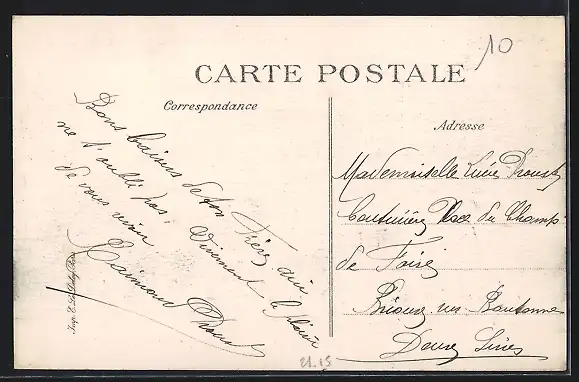 CARTE POSTALE
10
Correspondance
Adresse
Bons baisers de ton Frère qui
ne t'oubli pas. Vivement le plaisir
de vous revoir
Raimond
Mademoiselle Lucie
Couturière Place du Champ
de Foire
Brioux sur Boutonne
Deux Sèvres
21.15